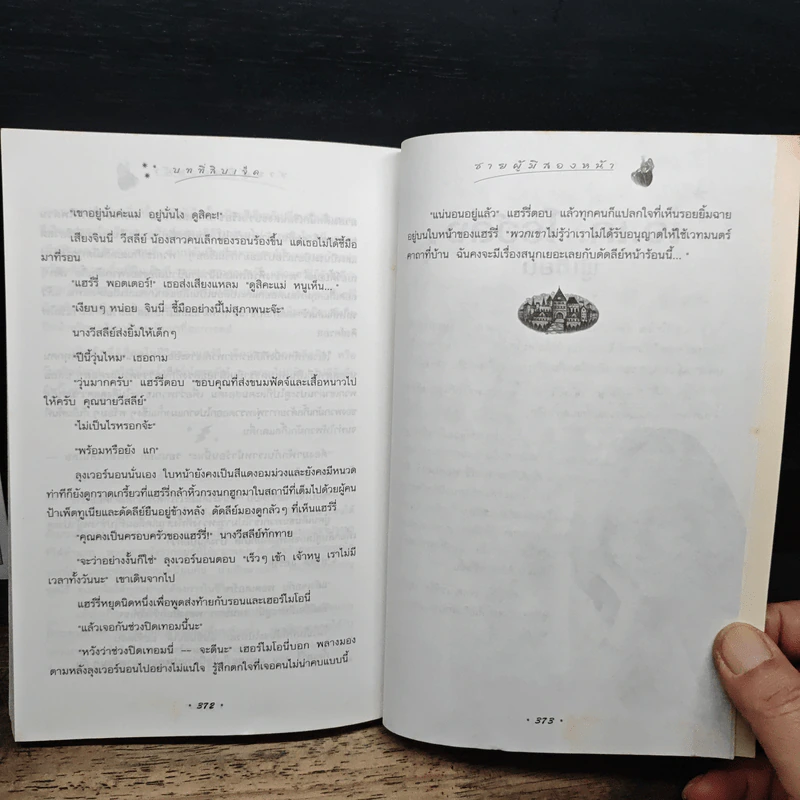 บทที่สิบเจ็ด
"เขาอยู่นั่นค่ะแม่ อยู่นั่นไง ดูสิคะ!"
เสียงจินนี่ วีสลีย์ น้องสาวคนเล็กของรอนร้องขึ้น แต่เธอไม่ได้ชี้มือ
มาที่รอน
"แฮร์รี่ พอตเตอร์!" เธอส่งเสียงแหลม "ดูสิคะแม่ หนูเห็น... "
"เงียบๆ หน่อย จินนี่ ชี้มืออย่างนี้ไม่สุภาพนะจ๊ะ"
นางวีสลีย์ส่งยิ้มให้เด็กๆ
"ปีนี้วุ่นไหม" เธอถาม
"วุ่นมากครับ" แฮร์รี่ตอบ "ขอบคุณที่ส่งขนมฟัดจ์และเสื้อหนาวไป
ให้ครับ คุณนายวีสลีย์"
"ไม่เป็นไรหรอกจ้ะ"
"พร้อมหรือยัง แก"
ลุงเวอร์นอนนั่นเอง ใบหน้ายังคงเป็นสีแดงอมม่วงและยังคงมีหนวด
ท่าทีก็ยังดูกราดเกรี้ยวที่แฮร์รี่กล้าหิ้วกรงนกฮูกมาในสถานีที่เต็มไปด้วยผู้คน
ป้าเพ็ตทูเนียและดัดลีย์ยืนอยู่ข้างหลัง ดัดลีย์มองดูกลัวๆ ที่เห็นแฮร์รี่
"คุณคงเป็นครอบครัวของแฮร์รี่!" นางวีสลีย์ทักทาย
"จะว่าอย่างงั้นก็ใช่" ลุงเวอร์นอนตอบ "เร็วๆ เข้า เจ้าหนู เราไม่มี
เวลาทั้งวันนะ" เขาเดินจากไป
แฮร์รี่หยุดนิดหนึ่งเพื่อพูดส่งท้ายกับรอนและเฮอร์ไมโอนี่
"แล้วเจอกันช่วงปิดเทอมนี้นะ"
"หวังว่าช่วงปิดเทอมนี่ — จะดีนะ" เฮอร์ไมโอนี่บอก พลางมอง
ตามหลังลุงเวอร์นอนไปอย่างไม่แน่ใจ รู้สึกตกใจที่เจอคนไม่น่าคบแบบนี้
372
ชายผู้มีสองหน้า
"แน่นอนอยู่แล้ว" แฮร์รี่ตอบ แล้วทุกคนก็แปลกใจที่เห็นรอยยิ้มฉาย
อยู่บนใบหน้าของแฮร์รี่ "พวกเขาไม่รู้ว่าเราไม่ได้รับอนุญาตให้ใช้เวทมนตร์
คาถาที่บ้าน ฉันคงจะมีเรื่องสนุกเยอะเลยกับดัดลีย์หน้าร้อนนี้... "
373